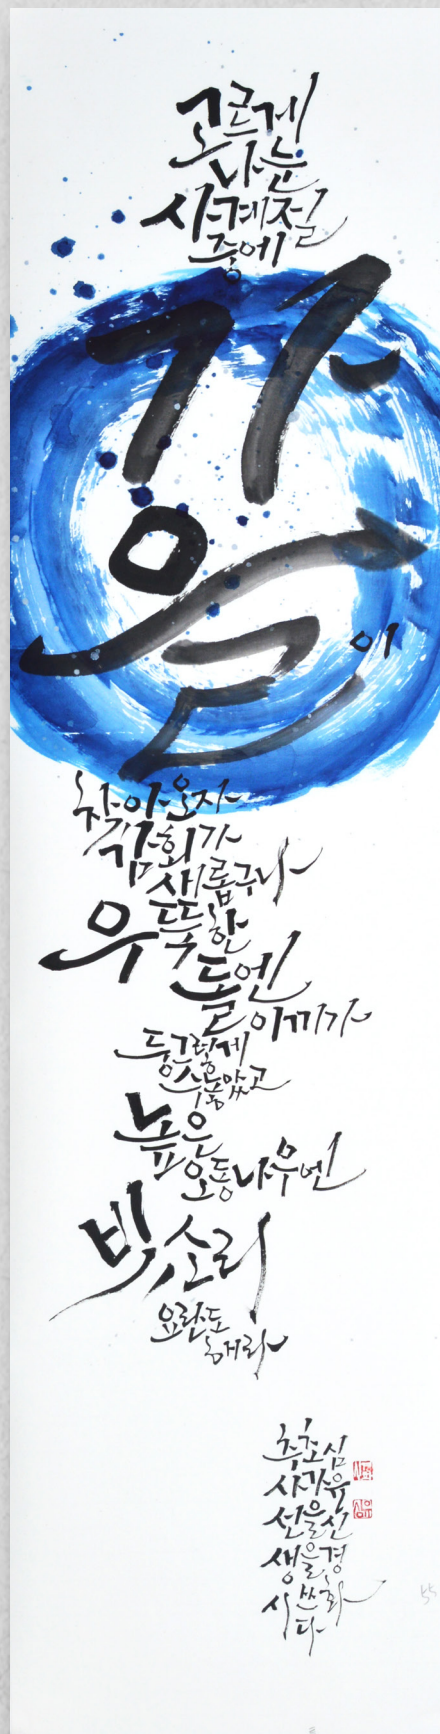 고르게
나눈
사계절
중에
가
을
이
찾아오자
감회가
새롭구나
우뚝한
돌엔
이끼가
둥그렇게
수놓았고
높은
오동나무엔
빗소리
요란도
추사선생시
초가을을쓰다